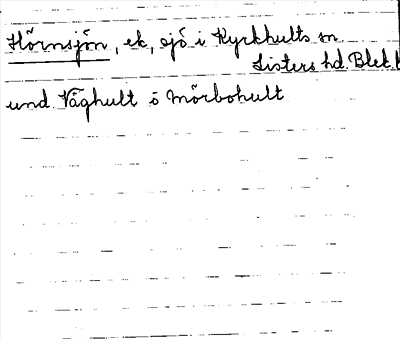 Hörnsjön, ek, sjö i Kyrkhults sn
Listers hd. Blek.l
und. Våghult o Mörbohult